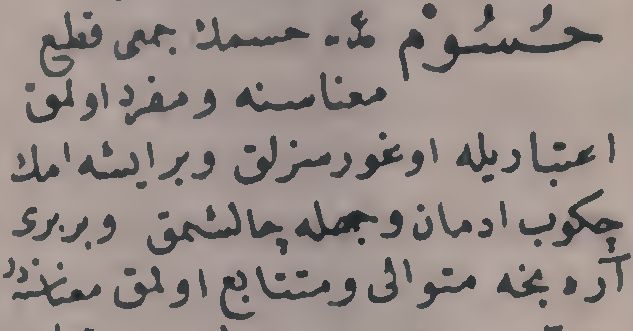 حُسُوْم مذ. حسمك جمعى قطع
معناسنه و مفرد اولمق
اعتباريله اوغورسزلق و بر ايشه امك
چكوب ادمان و جهله چالشمق و بربرى
آردنجه متوالى و متتابع اولمق معناسنه در